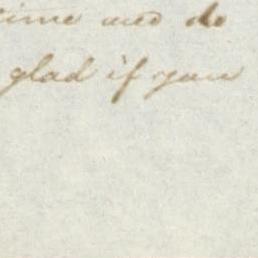 time and do
glad if you